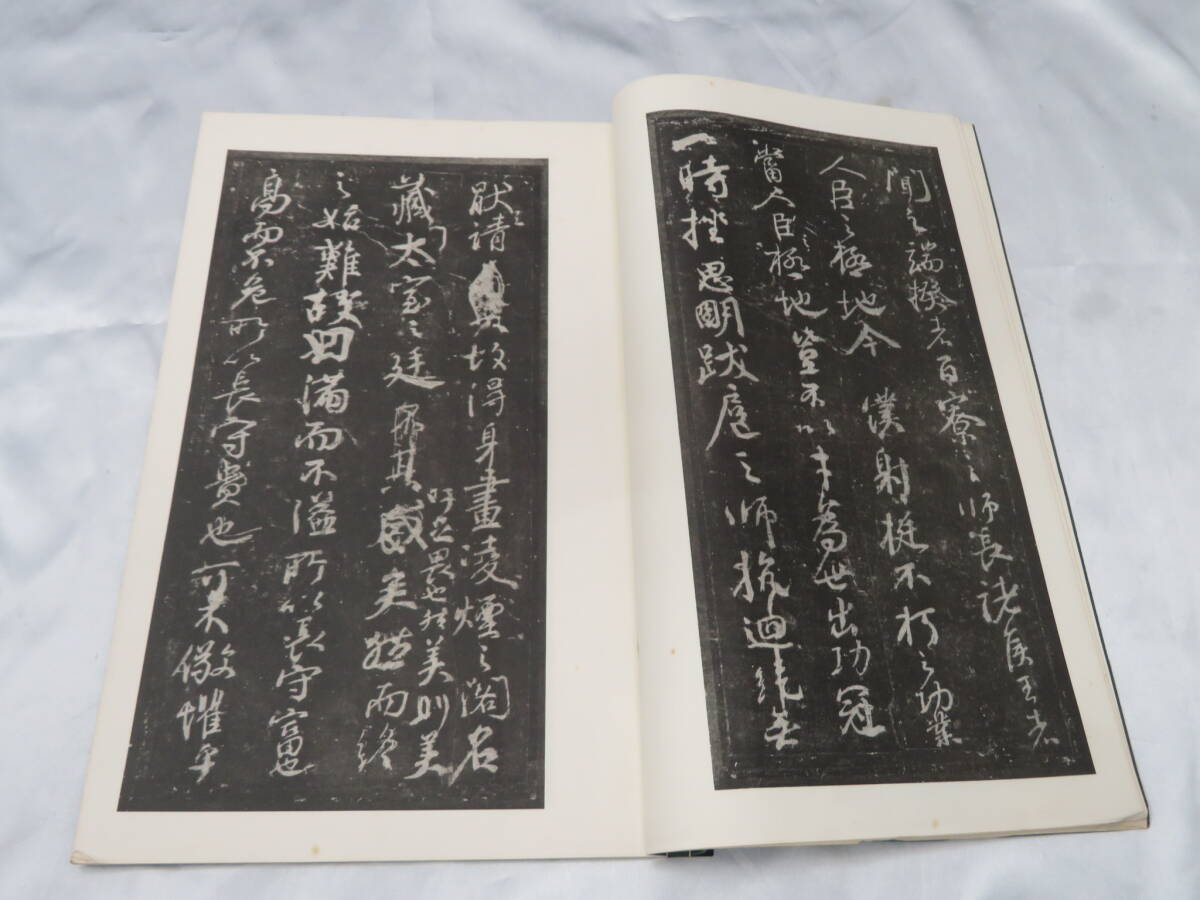 聞之端揆者百寮之師長諸侯王者
人臣之極地今 僕射挺不朽之功業
當人臣之極地豈不以才為世出功冠
一時挫思明跋扈之師抗迴紇無
厭之請故得身畫凌煙之閣名
藏太室之廷
吁足畏也然美則美
矣然而終
之始難故曰滿而不溢所以長守富也
高而不危所以長守貴也可不儆懼乎